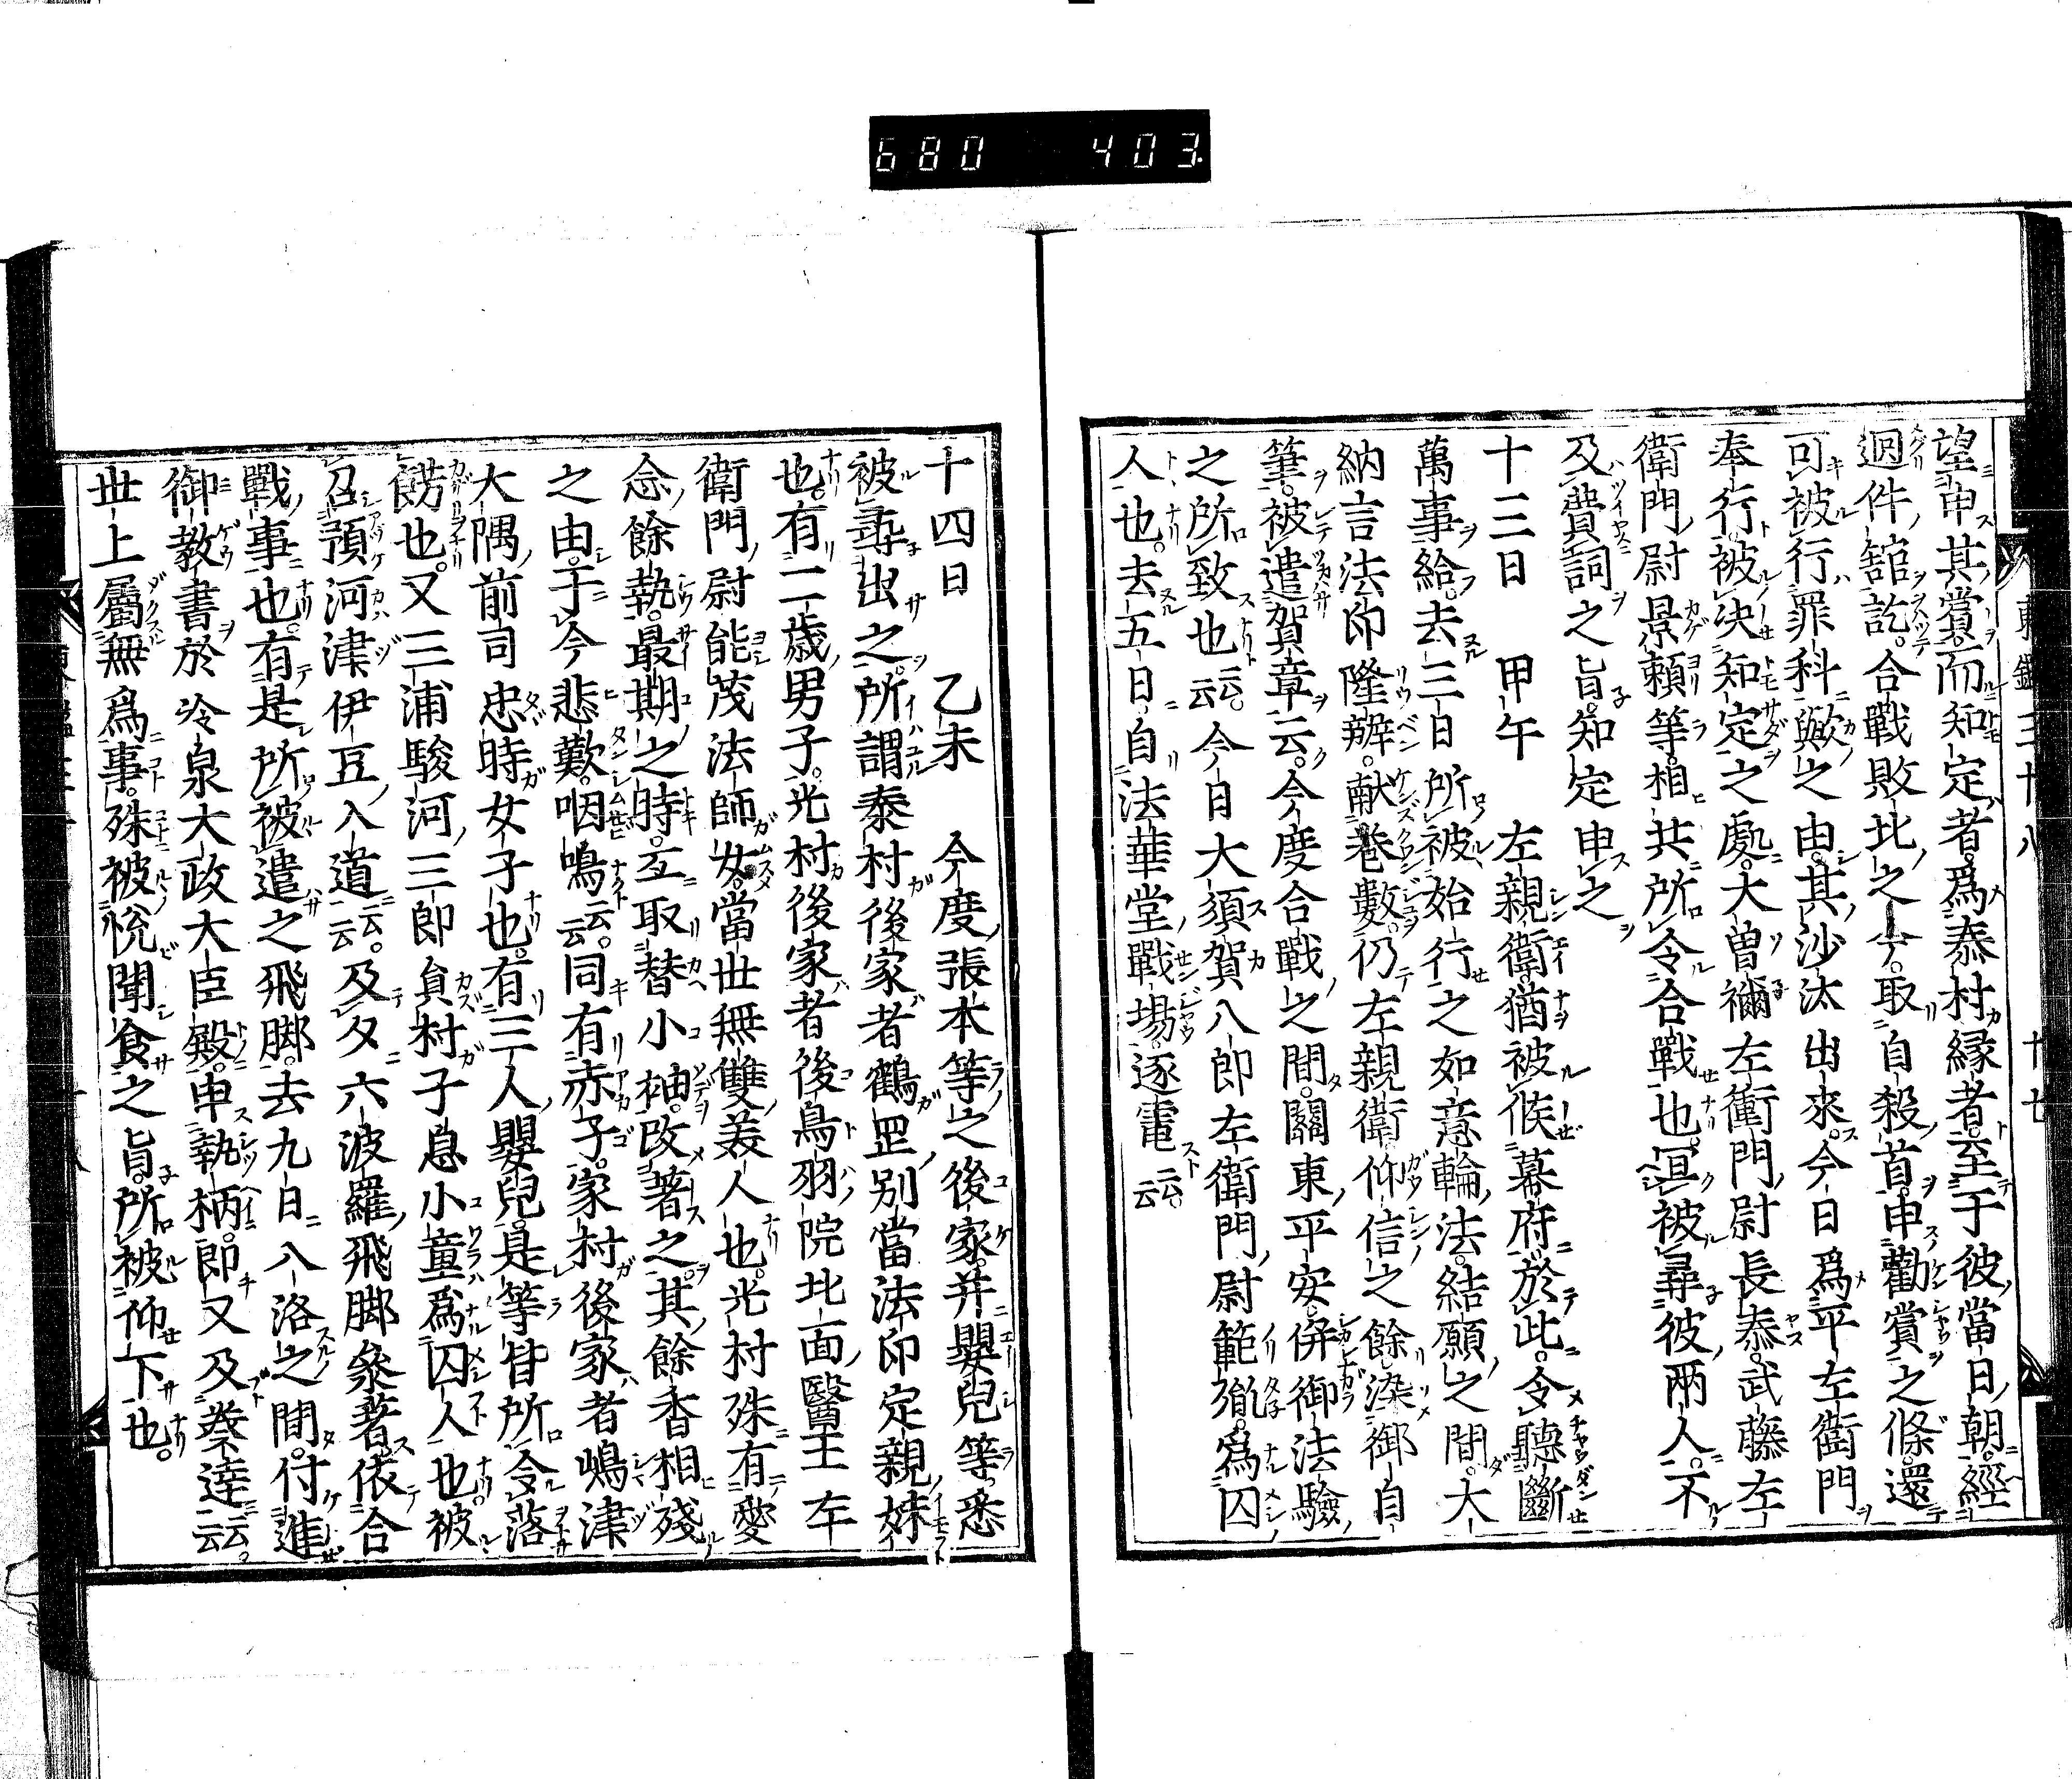 680 403
望申其賞。而知定者。爲泰村縁者。至于彼當日朝。經
廻件舘訖。合戰敗北之今。取自殺首。申勸賞之條。還
可被行罪科歟之由。其沙汰出來。今日爲平左衞門
奉行。被决知定之處。大曽禰左衞門尉長泰。武藤左
衞門尉景頼等。相共所令合戰也。冝被尋彼兩人。不
及費詞之旨。知定申之
十三日 甲午 左親衞猶被候幕府。於此。令聽斷
萬事給。去三日所被始行之如意輪法。結願之間。大
納言法印隆辨。献卷數。仍左親衞仰信之餘。染御自
筆。被遣賀章云。今度合戰之間。關東平安。併御法驗
之所致也云云。今日大須賀八郎左衞門尉範胤。爲囚
人也。去五日。自法華堂戰場。逐電云云
十四日 乙未 今度張本等之後家。并嬰兒等。悉
被尋出之。所謂泰村後家者。鶴岡別當法印定親妹
也。有二歳男子。光村後家者。後鳥羽院北面醫王左
衞門尉能茂法師女。當世無雙美人也。光村殊有愛
念餘執。最期之時。互取替小袖。改著之。其餘香相殘
之由。于今悲歎。咽鳴云云。同有赤子。家村後家者。嶋津
大隅前司忠時女子也。有三人嬰兒。是等皆所令落
餝也。又三浦駿河三郎員村子息小童爲囚人也。被
召預河津伊豆入道云云。及夕六波羅飛脚參著。依合
戰事也。有是所被遣之飛脚。去九日入洛之間。付進
御教書於冷泉大政大臣殿。申執柄。即又及奏達云云。
世上屬無爲事。殊被悦聞食之旨。所被仰下也。